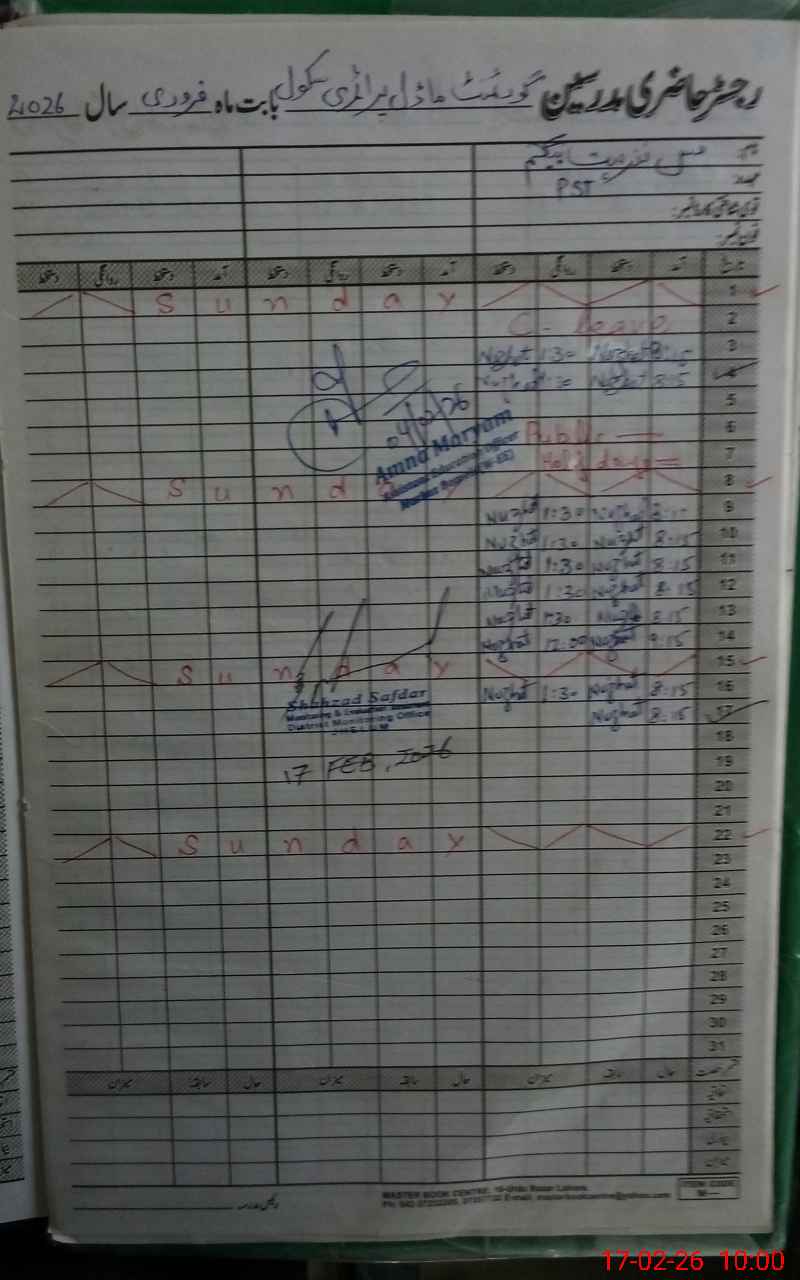 رجسٹر حاضری مدرسین گورنمنٹ ماڈل پرائمری سکول بابت ماہ فروری سال 2026
نام: مس نزہت بیگم
عہدہ: PST
قومی شناختی کارڈ نمبر:
فون نمبر:
تاریخ آمد دستخط روانگی دستخط آمد دستخط روانگی دستخط آمد دستخط روانگی دستخط
1 Sunday
2 C- Leave
3 8:15 Nuzhat 1:30 Nuzhat
4 8:15 Nuzhat 1:30 Nuzhat
5
6 Public
7 Holidays
8 Sunday
9 8:15 Nuzhat 1:30 Nuzhat
10 8:15 Nuzhat 1:30 Nuzhat
11 8:15 Nuzhat 1:30 Nuzhat
12 8:15 Nuzhat 1:30 Nuzhat
13 8:15 Nuzhat 1:30 Nuzhat
14 9:15 Nuzhat 12:00 Nuzhat
15 Sunday
16 8:15 Nuzhat 1:30 Nuzhat
17 8:15 Nuzhat
18
19
20
21
22 Sunday
23
24
25
26
27
28
29
30
31
04/02/26
Amna Maryam
Assistant Education Officer
Shahzad Safdar
Monitoring & Evaluation Assistant
District Monitoring Office
JHELUM
17 FEB, 2026
قسم رخصت حال سابقہ میزان حال سابقہ میزان حال سابقہ میزان
اتفاقیہ
استحقاقیہ
بیماری
میزان
MASTER BOOK CENTRE, 10-Urdu Bazar Lahore.
E-mail: masterbookcentre@yahoo.com
ITEM CODE
M—
17-02-26 10:00